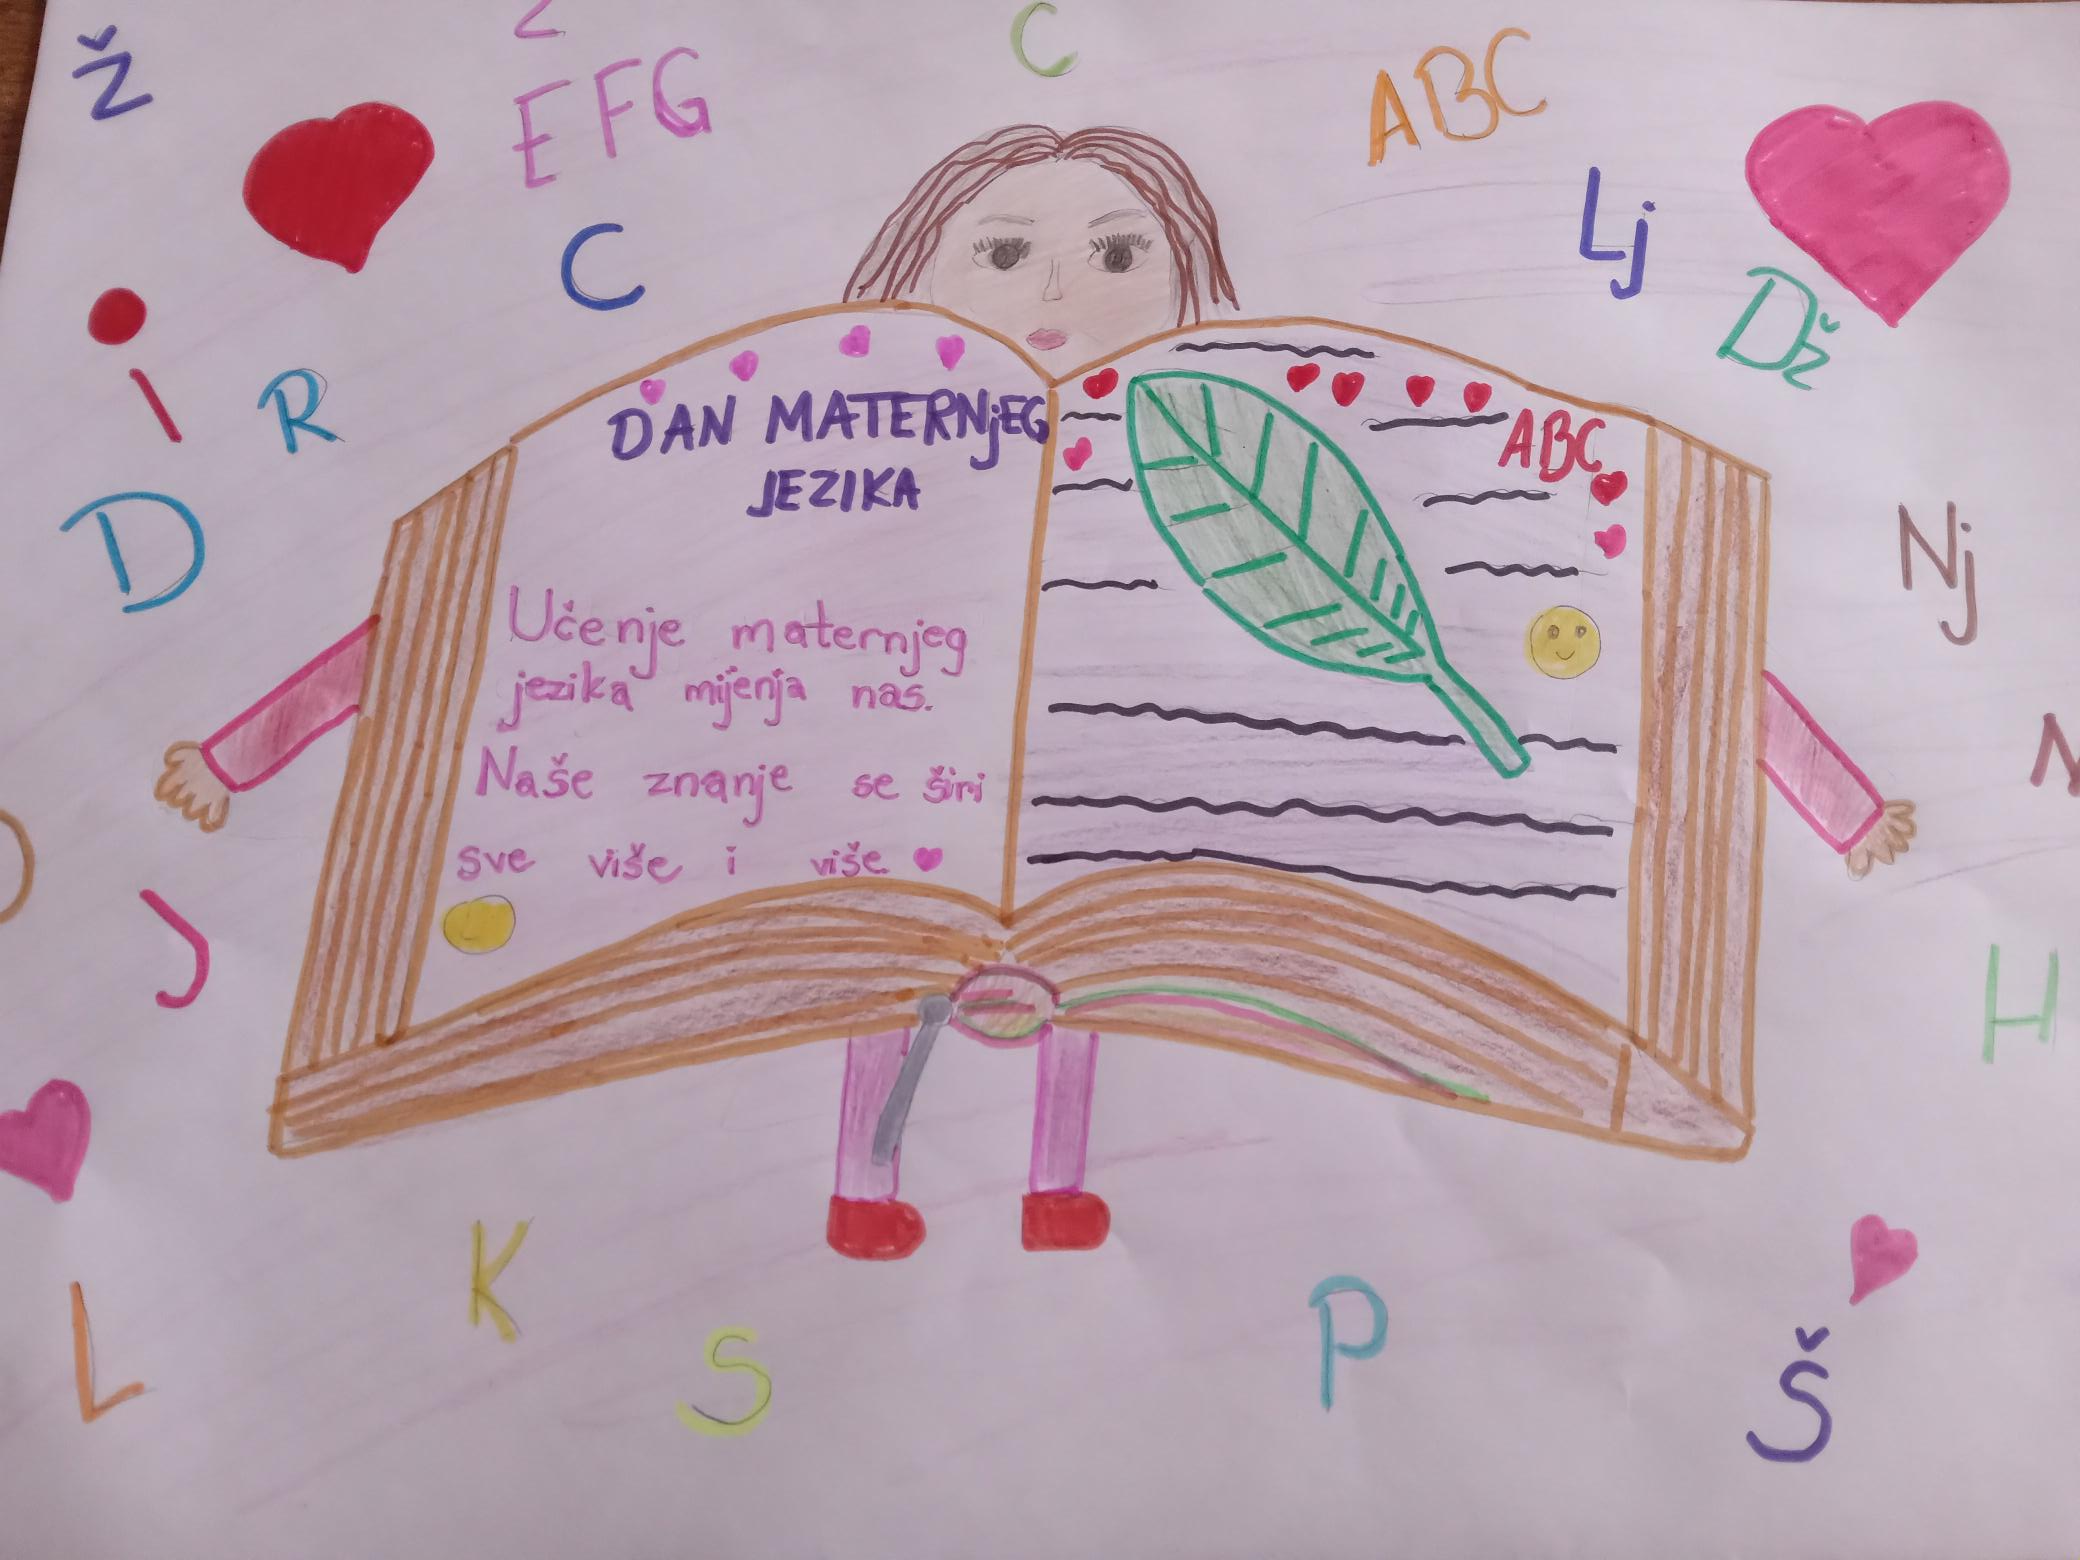 Ž
EFG
C
ABC
C
Lj
Dž
I
R
D
DAN MATERNjEG
JEZIKA
ABC
Učenje maternjeg
jezika mijenja nas.
Naše znanje se širi
sve više i više
Nj
J
H
K
L
S
P
Š